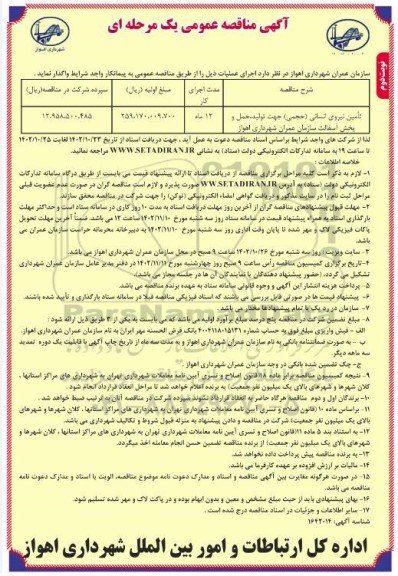 آگهی مناقصه عمومی یک مرحله ای
شهرداری اهواز
نوبت دوم
سازمان عمران شهرداری اهواز در نظر دارد اجرای عملیات ذیل را از طریق مناقصه عمومی به پیمانکار واجد شرایط واگذار نماید.
شرح مناقصه
مدت اجرای کار
مبلغ اولیه (ریال)
سپرده شرکت در مناقصه(ریال)
تأمین نیروی انسانی (حجمی) جهت تولید،حمل و پخش آسفالت سازمان عمران شهرداری اهواز
۱۲ ماه
۲۵۹.۱۷۰.۰۰۹.۷۰۰
۱۲.۹۵۸.۵۰۰.۴۸۵
لذا از شرکت های واجد شرایط براساس اسناد مناقصه دعوت به عمل آید ، جهت دریافت اسناد از تاریخ ۱۴۰۲/۱۰/۲۳ لغایت ۱۴۰۲/۱۰/۲۵
تا ساعت ۱۹ به سامانه تدارکات الکترونیکی دولت (ستاد) به نشانی WWW.SETADIRAN.IR مراجعه نمائید.
خلاصه اطلاعات :
۱- لازم به ذکر است کلیه مراحل برگزاری مناقصه از دریافت اسناد تا ارائه پیشنهاد قیمت می بایست از طریق درگاه سامانه تدارکات
الکترونیکی دولت (ستاد) به آدرس WWW.SETADIRAN.IR صورت پذیرد و لازم است مناقصه گران در صورت عدم عضویت قبلی
مراحل ثبت نام را در سایت مذکور و دریافت گواهی امضاء الکترونیکی (توکن) را جهت شرکت در مناقصه محقق سازند.
۳- مهلت قبول پیشنهادهای مناقصه گران از آخرین روز مهلت دریافت اسناد به مدت ۱۰ روز کاری در سامانه ستاد است و حداکثر مهلت
بارگذاری اسناد به همراه پیشنهاد قیمت در سامانه ستاد روز سه شنبه مورخ ۱۴۰۲/۱۱/۱۰ ساعت ۱۲ می باشد. ضمناً آخرین مهلت تحویل
پاکات فیزیکی لاک و مهر شده تا پایان وقت اداری روز سه شنبه مورخ ۱۴۰۲/۱۱/۱۰ به دبیرخانه محرمانه حراست سازمان عمران می
باشد.
۳- سایت ویزیت: روز سه شنبه مورخ ۱۴۰۲/۱۰/۲۶ ساعت ۹ صبح در محل سازمان عمران شهرداری اهواز می باشد.
۴- تاریخ برگزاری کمیسیون مناقصه رأس ساعت ۹ صبح روز چهارشنبه مورخ ۱۴۰۲/۱۱/۱۶ در دفتر مدیر عامل سازمان عمران شهرداری
تشکیل می گردد، (حضور پیشنهاد دهندگان یا نمایندگان آن ها در جلسه مجاز می باشد).
۵- پرداخت هزینه انتشار این آگهی و وجوه قانونی سامانه ستاد به عهده برنده مناقصه می باشد.
۶- پیشنهاد قیمت ها در صورتی قابل بررسی می باشند که اسناد فیزیکی مناقصه قبلا در سامانه ستاد بارگذاری و تأیید شده باشند.
۷- سازمان در رد یک یا تمام پیشنهادها مختار می باشد.
۸- مبلغ تضمین شرکت در مناقصه پنج درصد مبلغ برآورد اولیه می باشد که می بایست به یکی از ۳ طریق ذیل ارائه شود:
الف - فیش واریزی مبلغ فوق به حساب شماره ۴۰۰۴۶۱۱۸۰۱۵۱۳۱ بانک قرض الحسنه مهر ایران به نام سازمان عمران شهرداری اهواز.
ب - به صورت ضمانتنامه بانکی به نام سازمان عمران شهرداری اهواز و به مدت سه ماه از تاریخ چاپ آگهی با قابلیت یک دوره تمدید
سه ماهه دیگر.
ج- چک تضمین شده بانکی در وجه سازمان عمران شهرداری اهواز.
۹- نتیجه کمیسیون مناقصه برابر ماده ۱۸(قانون اصلاح و تسری آیین نامه معاملات شهرداری تهران به شهرداری های مراکز استانها ،
کلان شهرها و شهرهای بالای یک میلیون نفر جمعیت) به برنده اعلام خواهد شد تا مراحل انعقاد قرارداد انجام شود.
۱۰- برندگان اول و دوم مناقصه هرگاه حاضر به انعقاد قرارداد نشوند سپرده شرکت در مناقصه آنان به ترتیب ضبط خواهد شد.
۱۱- براساس ماده ۱۰(قانون اصلاح و تسری آیین نامه معاملات شهرداری تهران به شهرداری های مراکز استانها ، کلان شهرها و شهرهای
بالای یک میلیون نفر جمعیت) شرکت در مناقصه و دادن پیشنهاد به منزله قبول شروط و تکالیف شهرداری می باشد.
۱۲- به استناد بند ۵ ماده ۱۱(قانون اصلاح و تسری آیین نامه معاملات شهرداری تهران به شهرداری های مراکز استانها ، کلان شهرها و
شهرهای بالای یک میلیون نفر جمعیت) از برنده مناقصه تضمین حسن انجام معامله اخذ میگردد.
۱۳- به برنده مناقصه پیش پرداخت داده نخواهد شد.
۱۴- مالیات بر ارزش افزوده بر عهده کارفرما می باشد.
۱۵- در صورت هرگونه مغایرت بین آگهی مناقصه و اسناد و مدارک دعوت نامه موضوع مناقصه، الویت با اسناد و مدارک دعوت نامه
مناقصه می باشد.
۱۶- بهای پیشنهادی باید از حیث مبلغ مشخص و معین و بدون ابهام بوده و در پاکت لاک و مهر شده تسلیم شود.
۱۷- سایر اطلاعات و جزئیات در اسناد مناقصه درج شده است .
شناسه آگهی: ۱۶۴۲۰۱۴
اداره کل ارتباطات و امور بین الملل شهرداری اهواز